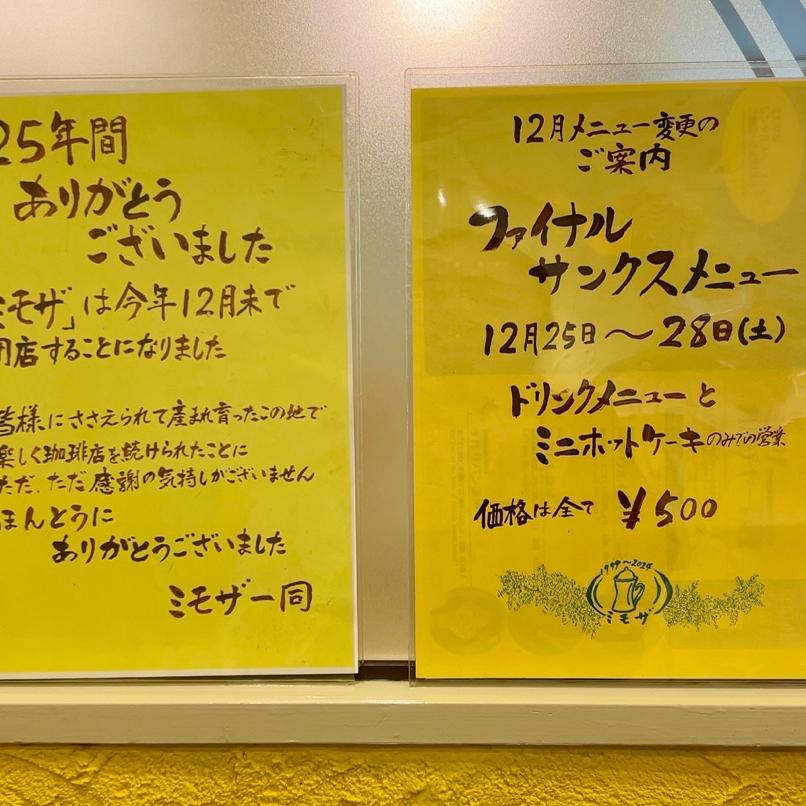 25年間
ありがとう
ございました
ミモザ」は今年12月末で
閉店することになりました
皆様にささえられて産まれ育ったこの地で
楽しく珈琲店を続けられたことに
ただ、ただ感謝の気持しかございません
ほんとうに
ありがとうございました
ミモザ一同
12月メニュー変更の
ご案内
ファイナル
サンクスメニュー
12月25日〜28日(土)
ドリンクメニューと
ミニホットケーキのみでの営業
価格は全て ¥500
1999〜2024
ミモザ